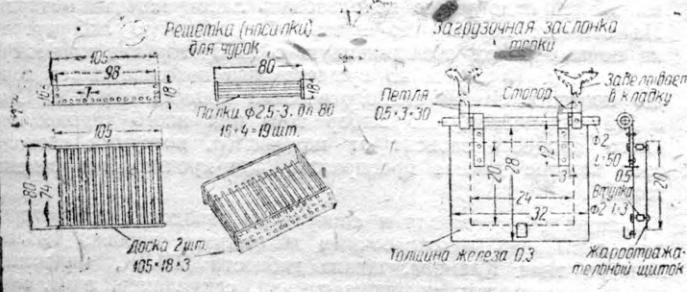 Решетка (носилки)
для чурок
105
98
7
18
80
18
Палки Ф2,5-3. дл-80
15+4=19шт.
105
80
74
Доска 2шт.
105×18×3
Загрузочная заслонка
топки
Петля
0,5×3×30
Стопор
Заделывает
в кладку
Ф2
L=50
0,5
Втулка
Ф2 L=3
12
3
20
28
24
32
20
Толщина железа 0,3
Жароотража-
тельный щиток